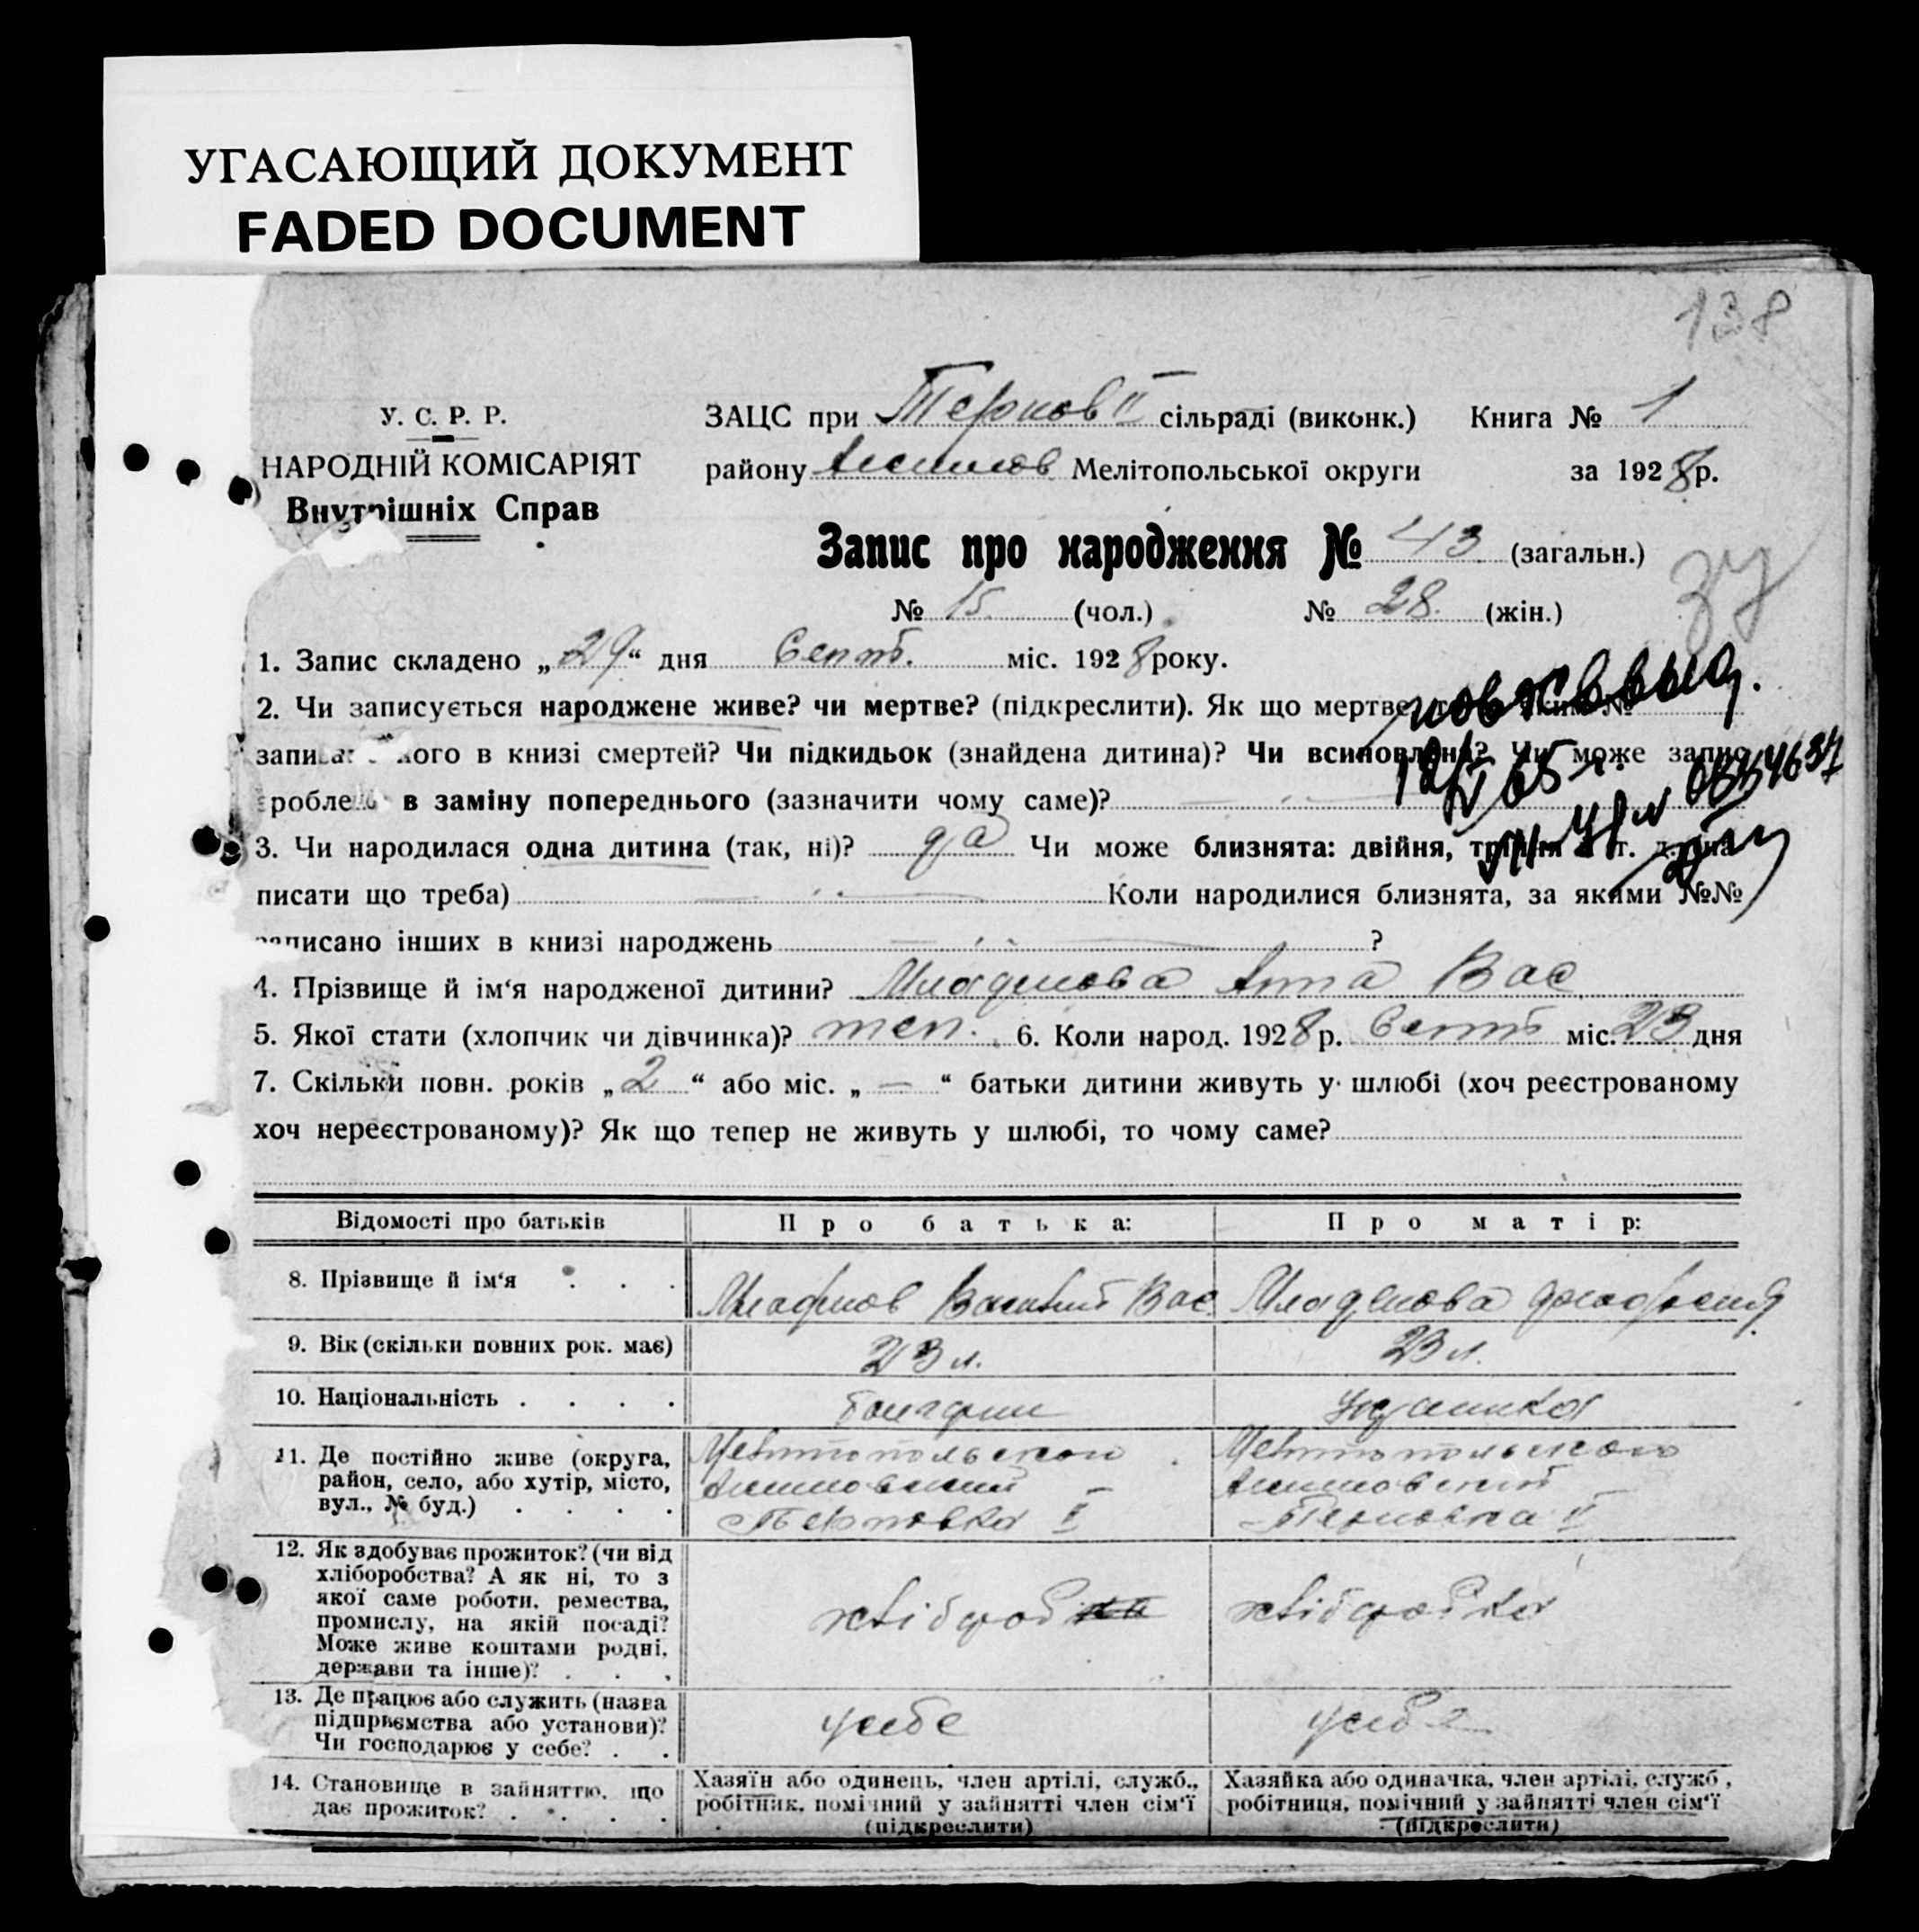 УГАСАЮЩИЙ ДОКУМЕНТ
FADED DOCUMENT
138
У. С. Р. Р.
НАРОДНІЙ КОМІСАРІЯТ
Внутрішніх Справ
ЗАЦС при Тернов II сільраді (виконк.) Книга № 1
району Акимов Мелітопольської округи за 1928 р.
Запис про народження № 43 (загальн.)
№ 15 (чол.) № 28. (жін.)
1. Запис складено „29“ дня Септб. міс. 1928 року.
2. Чи записується народжене живе? чи мертве? (підкреслити). Як що мертве, №
кого в книзі смертей? Чи підкидьок (знайдена дитина)? Чи всиновлена? Чи може запис
зроблено в заміну попереднього (зазначити чому саме)?
3. Чи народилася одна дитина (так, ні)? да Чи може близнята: двійня, трійня і т. д.
писати що треба) Коли народилися близнята, за якими №№
записано інших в книзі народжень ?
4. Прізвище й ім‘я народженої дитини? Младинова Анна Вас
5. Якої стати (хлопчик чи дівчинка)? жен. 6. Коли народ. 1928 р. Септб міс. 23 дня
7. Скільки повн. років „2“ або міс. „—“ батьки дитини живуть у шлюбі (хоч реєстрованому
хоч нереєстрованому)? Як що тепер не живуть у шлюбі, то чому саме?
Відомості про батьків Про батька: Про матір:
8. Прізвище й ім‘я Василий Вас
9. Вік (скільки повних рок. має) 23 л. 23 л.
10. Національність болгарин украинка
11. Де постійно живе (округа, район, село, або хутір, місто, вул., № буд.)
Мелитопольской Мелитопольской
Акимовский Акимовский
Терновка II Терновка II
12. Як здобуває прожиток? (чи від
хліборобства? А як ні, то з
якої саме роботи, ремества,
промислу, на якій посаді?
Може живе коштами родні,
держави та інше)?
хлібороб хліборобка
13. Де працює або служить (назва
підприємства або установи)?
Чи господарює у себе?
у себе у себе
14. Становище в зайняттю, що
дає прожиток?
Хазяїн або одинець, член артілі, служб.,
робітник, помічний у зайнятті член сім‘ї
(підкреслити)
Хазяйка або одиначка, член артілі, служб.,
робітниця, помічний у зайнятті член сім‘ї
(підкреслити)